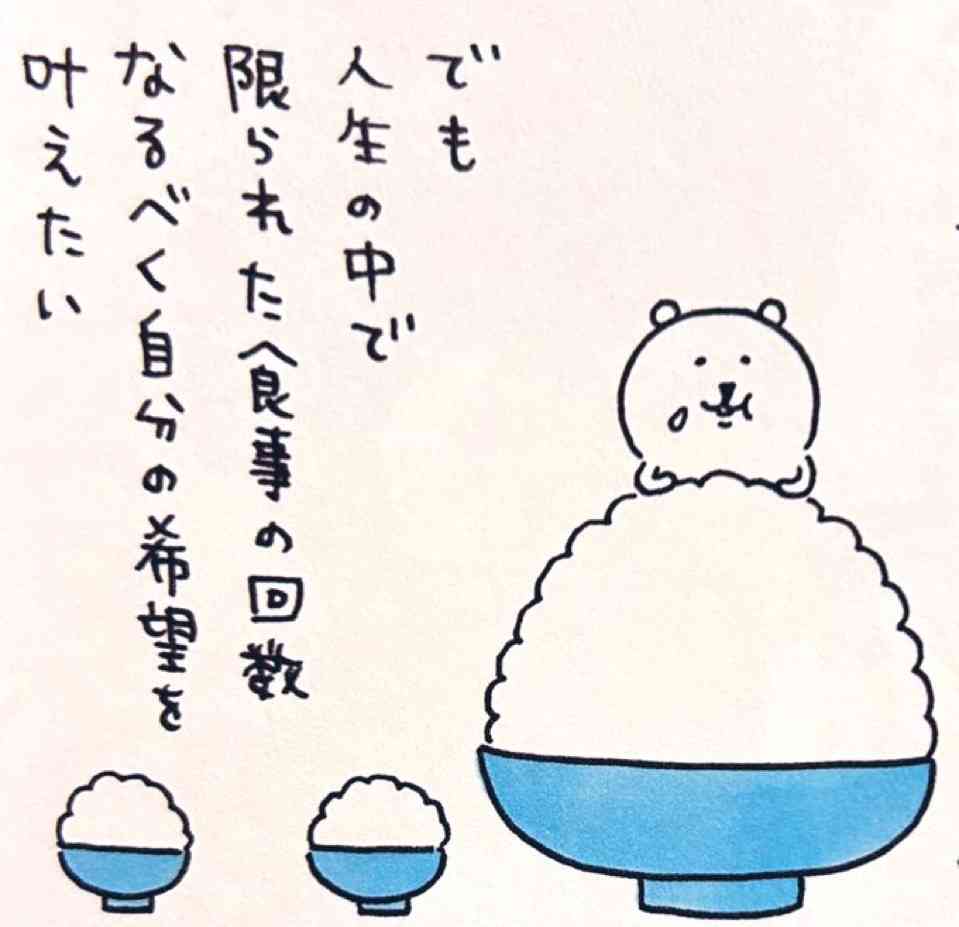 でも
人生の中で
限られた食事の回数
なるべく自分の希望を
叶えたい